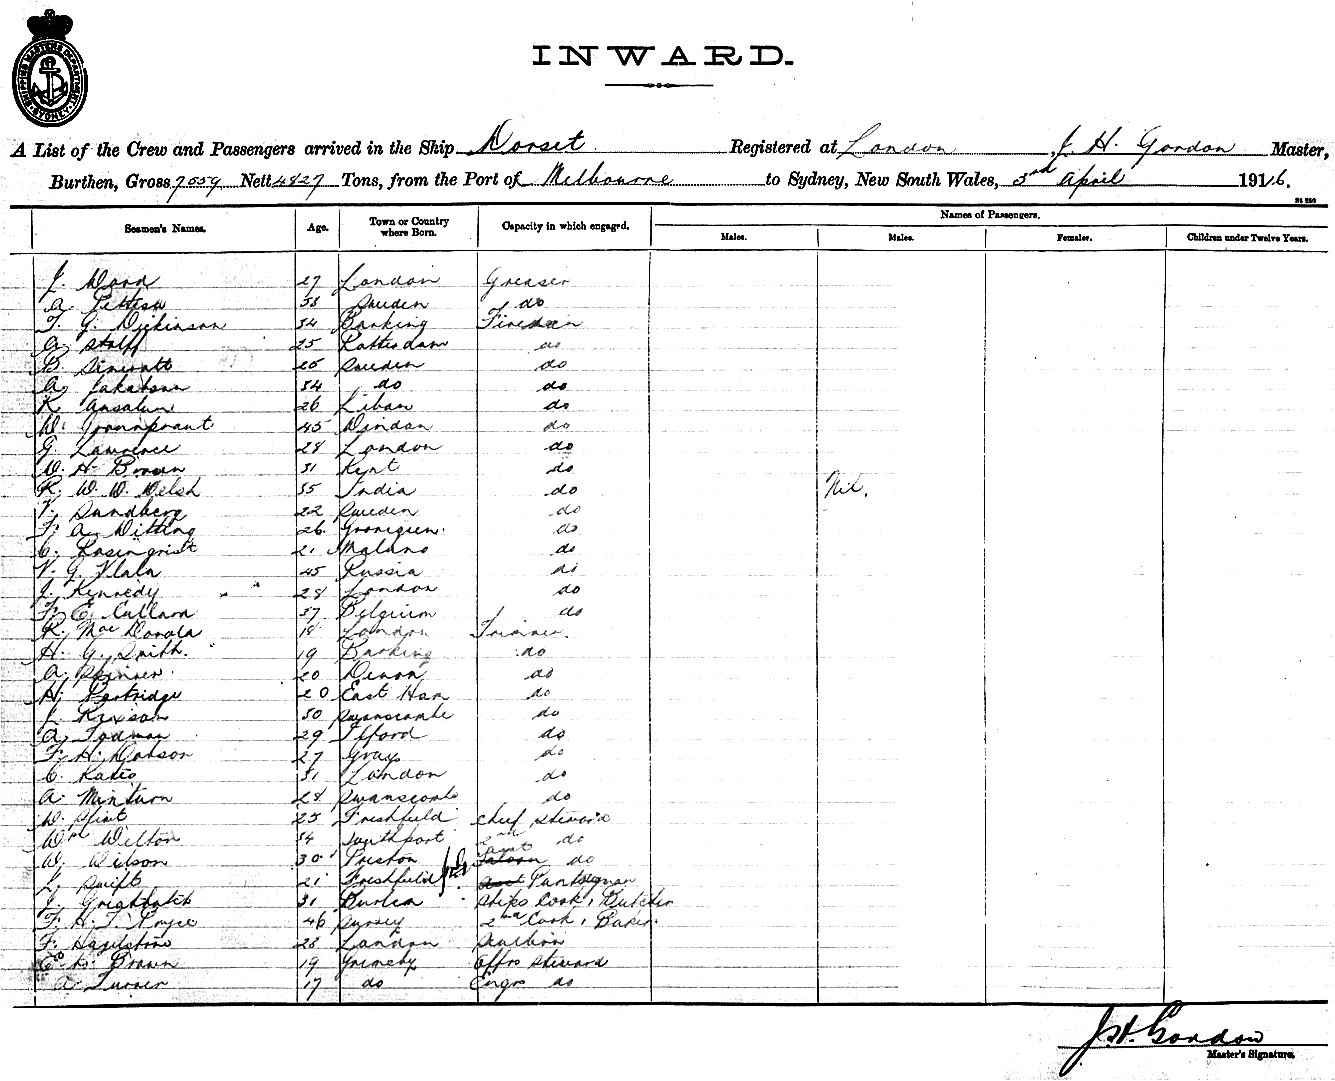 SHIPPING MASTERS DEPARTMENT SYDNEY
INWARD.
A List of the Crew and Passengers arrived in the Ship Dorset Registered at London J. H. Gordon Master,
Burthen, Gross 7059 Nett 4827 Tons, from the Port of Melbourne to Sydney, New South Wales, 3rd April 1916.
Seamen's Names. Age. Town or Country where Born. Capacity in which engaged. Names of Passengers.
Males. Males. Females. Children under Twelve Years.
J. Ward 27 London Greaser
A. Sweden do
F. G. Dickinson 34 Barking Fireman
G. Stolff 25 Rotterdam do
B. 25 Sweden do
A. Jakobson 34 do do
K. Ansalum 26 Libau do
W. 45 do
G. Lawrence 28 London do
W. H. Brown 31 Kent do
R. W. W. Welsh 35 India do Nil.
V. Sundberg 22 Sweden do
F. A. Witting 26 do
C. Rosenqvist 21 do
V. G. 45 Russia do
J. Kennedy 28 London do
F. E. Cullard 37 Belgium do
R. MacDonald 18 London Trimmer.
H. G. Smith. 19 Barking do
A. 20 Devon do
H. Partridge 20 East Ham do
J. 30 Swanscombe do
A. Todman 29 Ilford do
F. H. Dobson 27 Grays do
C. 31 London do
A. Minturn 28 Swanscombe do
W. 25 Freshfield Chief Steward
Wm Wilton 34 Southport 2nd do
W. Wilson 30 Preston Asst Saloon do
L. Swift 21 Freshfield Pantryman
J. 31 Ships Cook & Butcher
F. H. T. 46 Surrey 2nd Cook & Baker.
F. Hazelstine 23 London Scullion
E. Brown 19 Grimsby Offrs Steward
A. Turner 17 do Engr do
J. H. Gordon
Master's Signature.